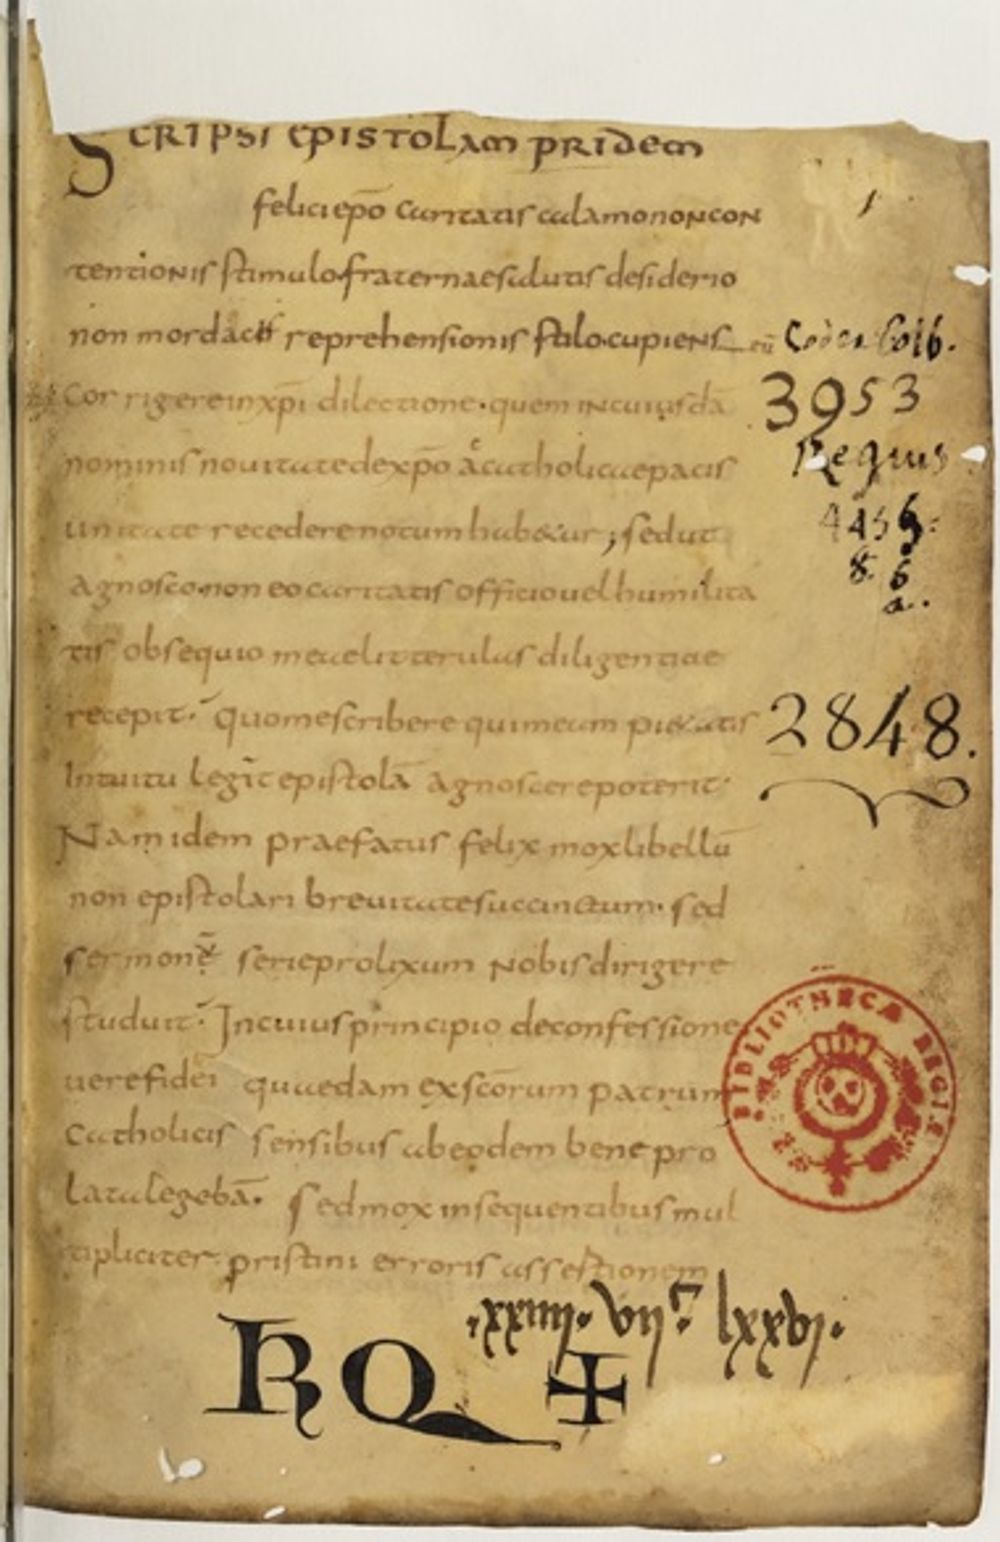 SCRIPSI EPISTOLAM PRIDEM
felici ep̄o caritatis calamo non con
tentionis stimulo fraternae salutis desiderio
non mordacis reprehensionis stilo cupiens eū
Corrigere in xp̄i dilectione · quem in cuiusdā
nominis nouitate de xp̄o a catholicae pacis
unitate recedere notum hab&ur ; sed ut
agnosco non eo caritatis officio uel humilita
tis obsequio meae litterulas diligentiae
recepit · quo me scribere qui meam pi&atis
Intuitu legit epistolā agnoscere poterit ·
Nam idem praefatus felix mox libellū
non epistolari breuitate succinctum · sed
sermone serie prolixum nobis dirigere
studuit · In cuius principio de confessione
uere fidei quaedam ex sc̄orum patrum
catholicis sensibus ab eodem bene pro
lata legebā · sed mox in sequentibus mul
tipliciter pristini erroris assertionem
Codex Colb.
3953
Regius
4456
8. 6
a.
2848.
BIBLIOTHECÆ REGIÆ
·xxiiii· vii lxxvi·
RQ